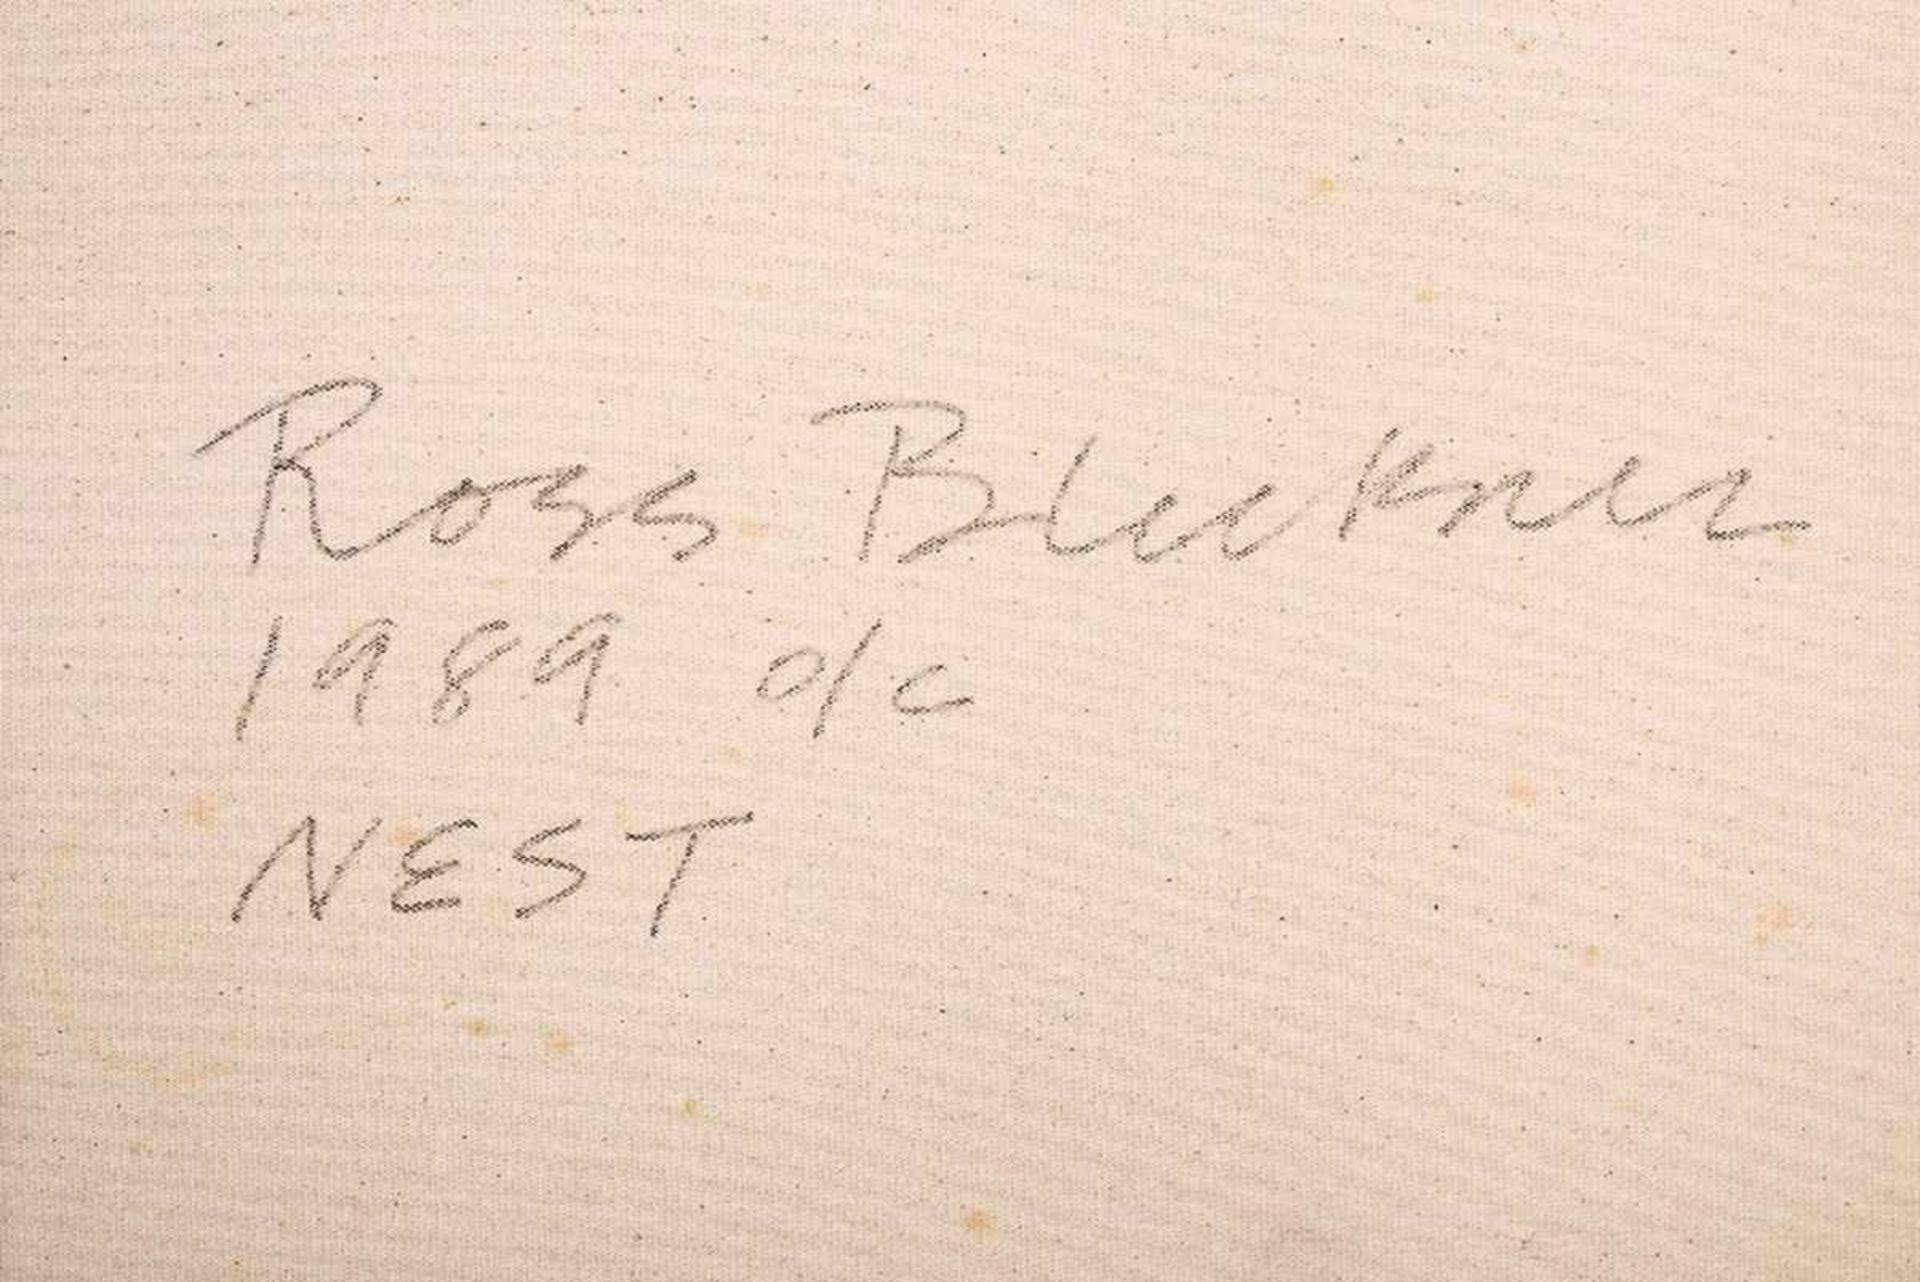 Ross Bleckner
1989 o/c
NEST